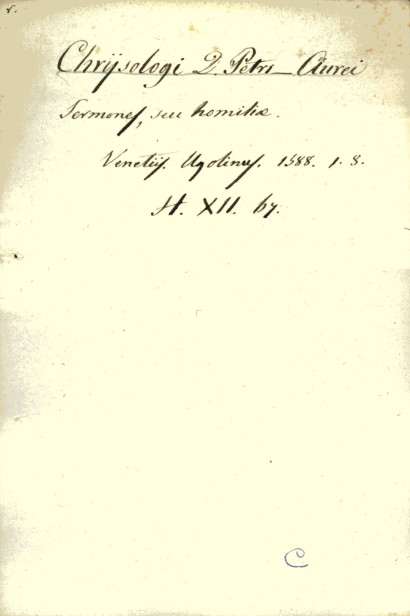 r.
Chrÿsologi D. Petri Aurei
Sermones, seu homiliæ.
Venetijs. Ugolinus. 1588. 1. 8.
H. XII. 67.
C